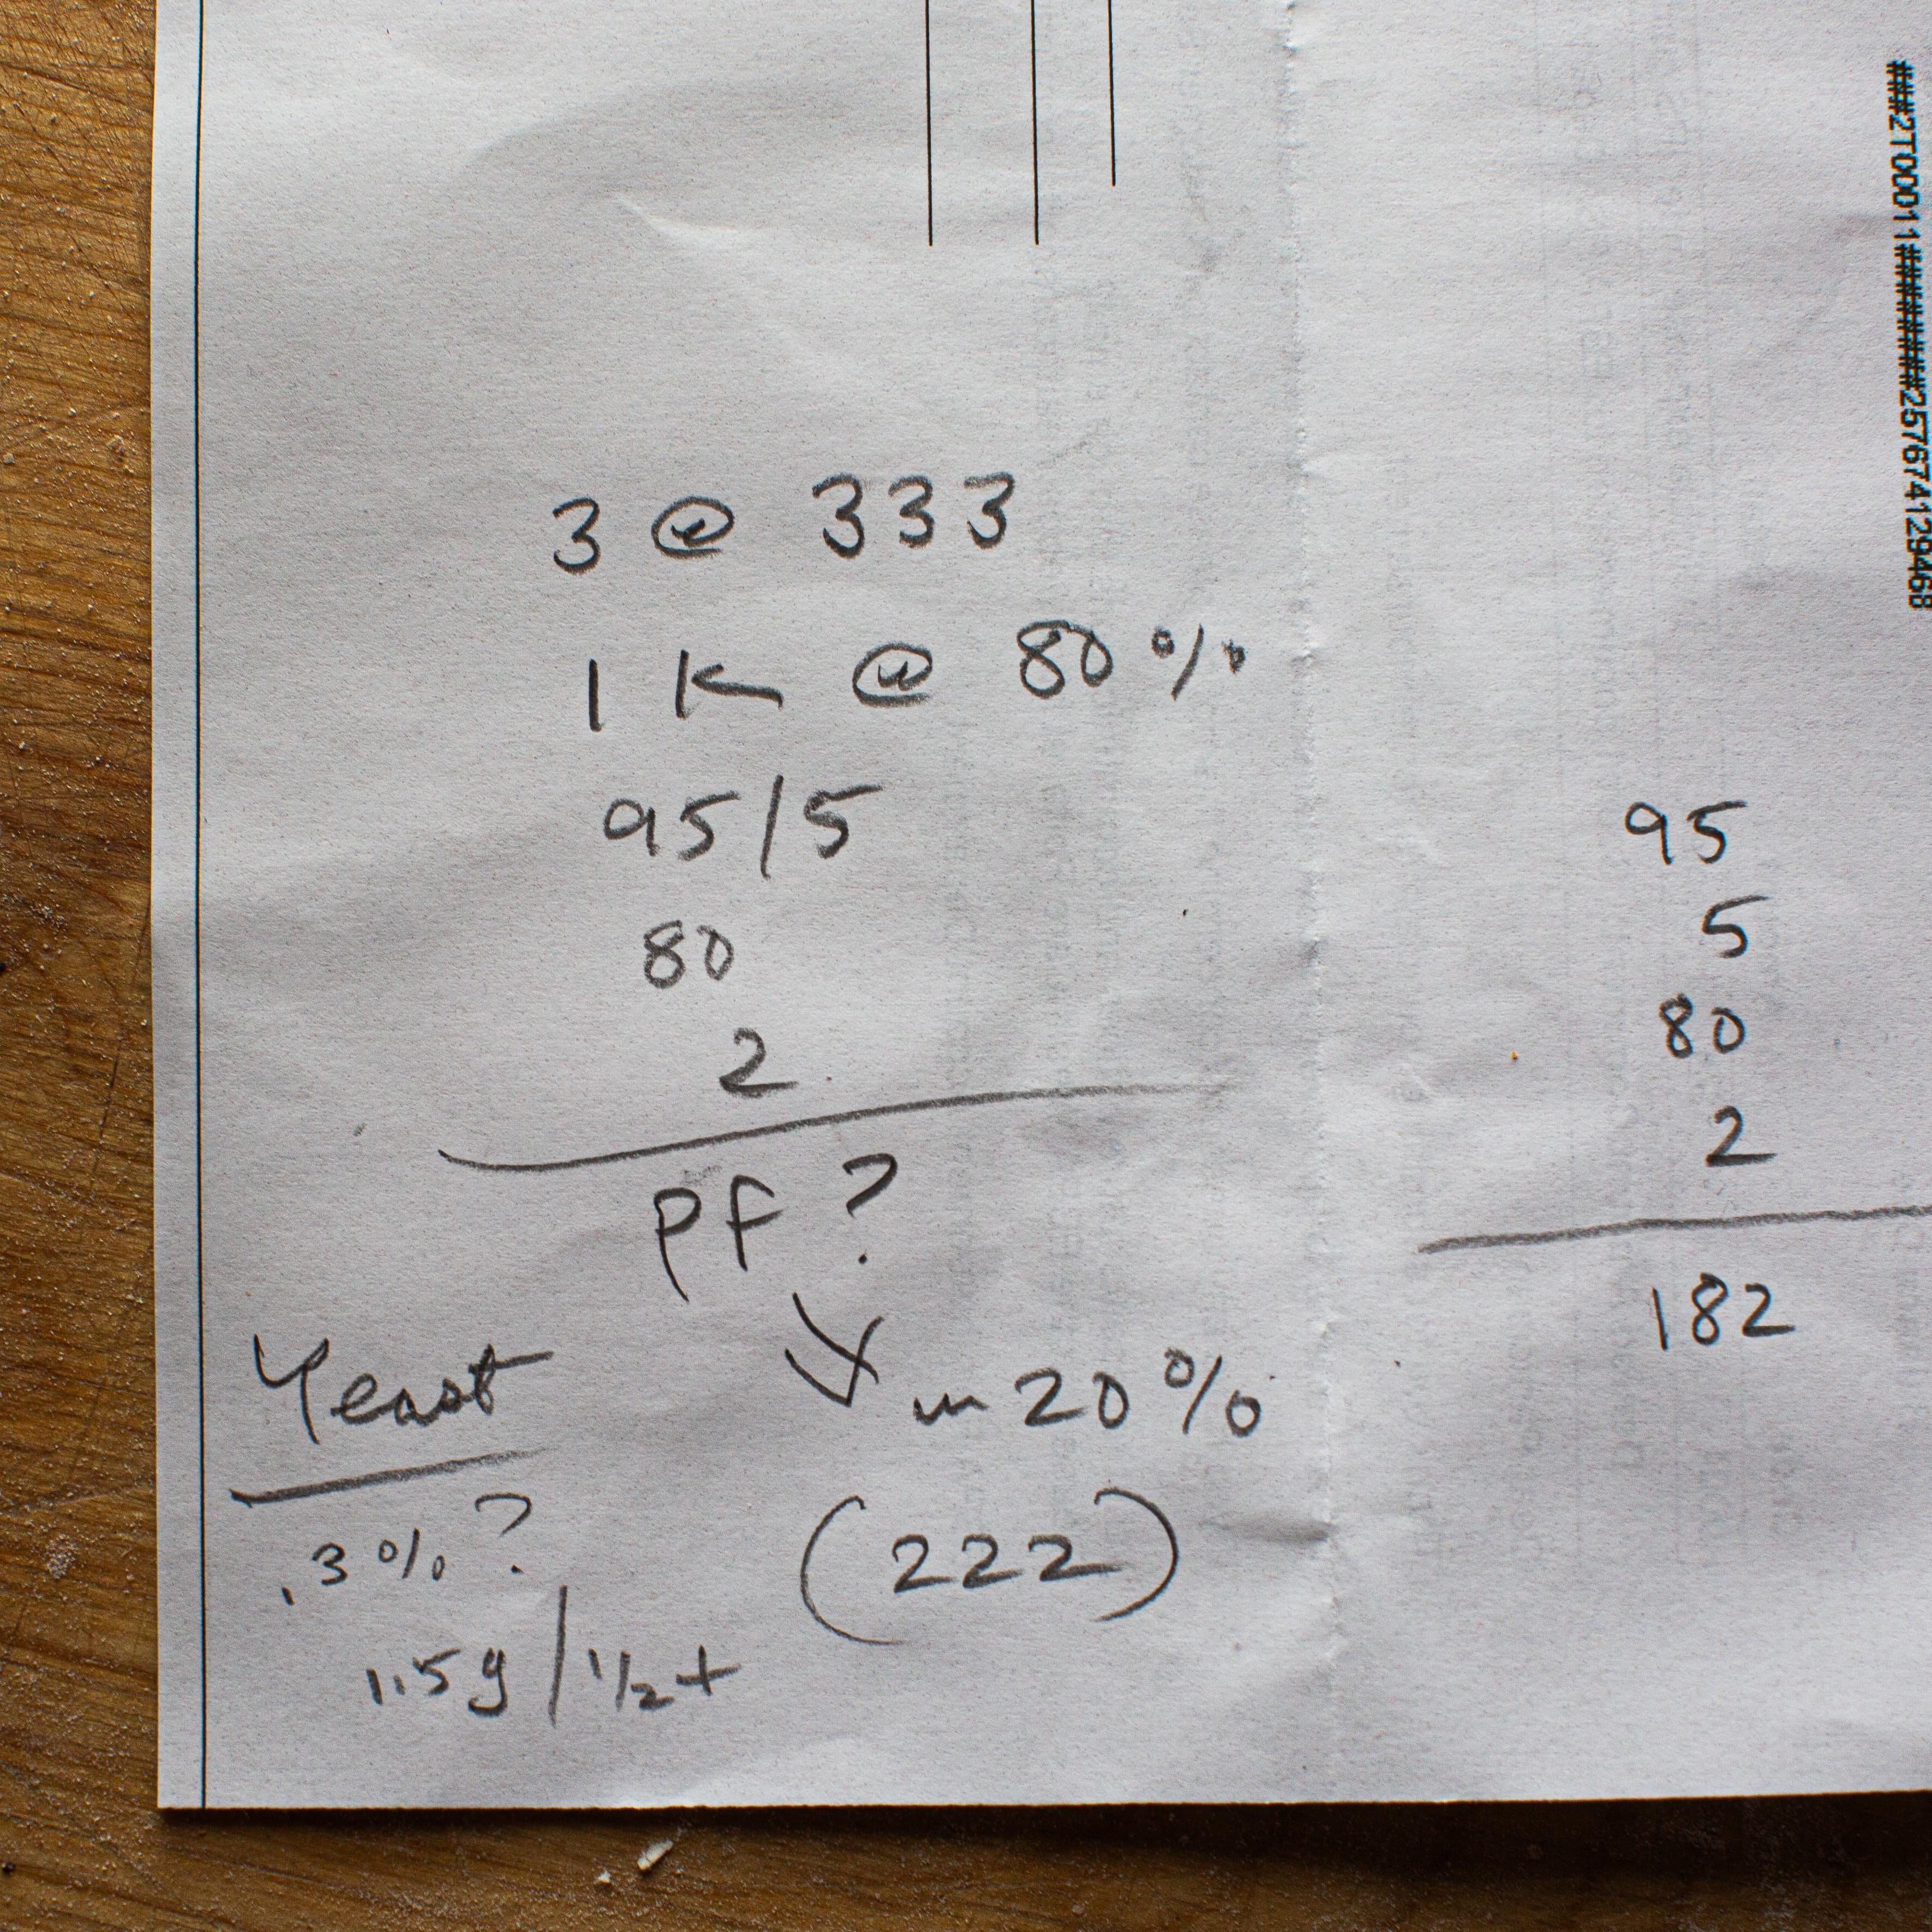 3 @ 333
1 K @ 80%
95/5
80
2
PF?
20%
(222)
Yeast
.3%?
1.5g/½t
95
5
80
2
182
###2T00011########257674129468